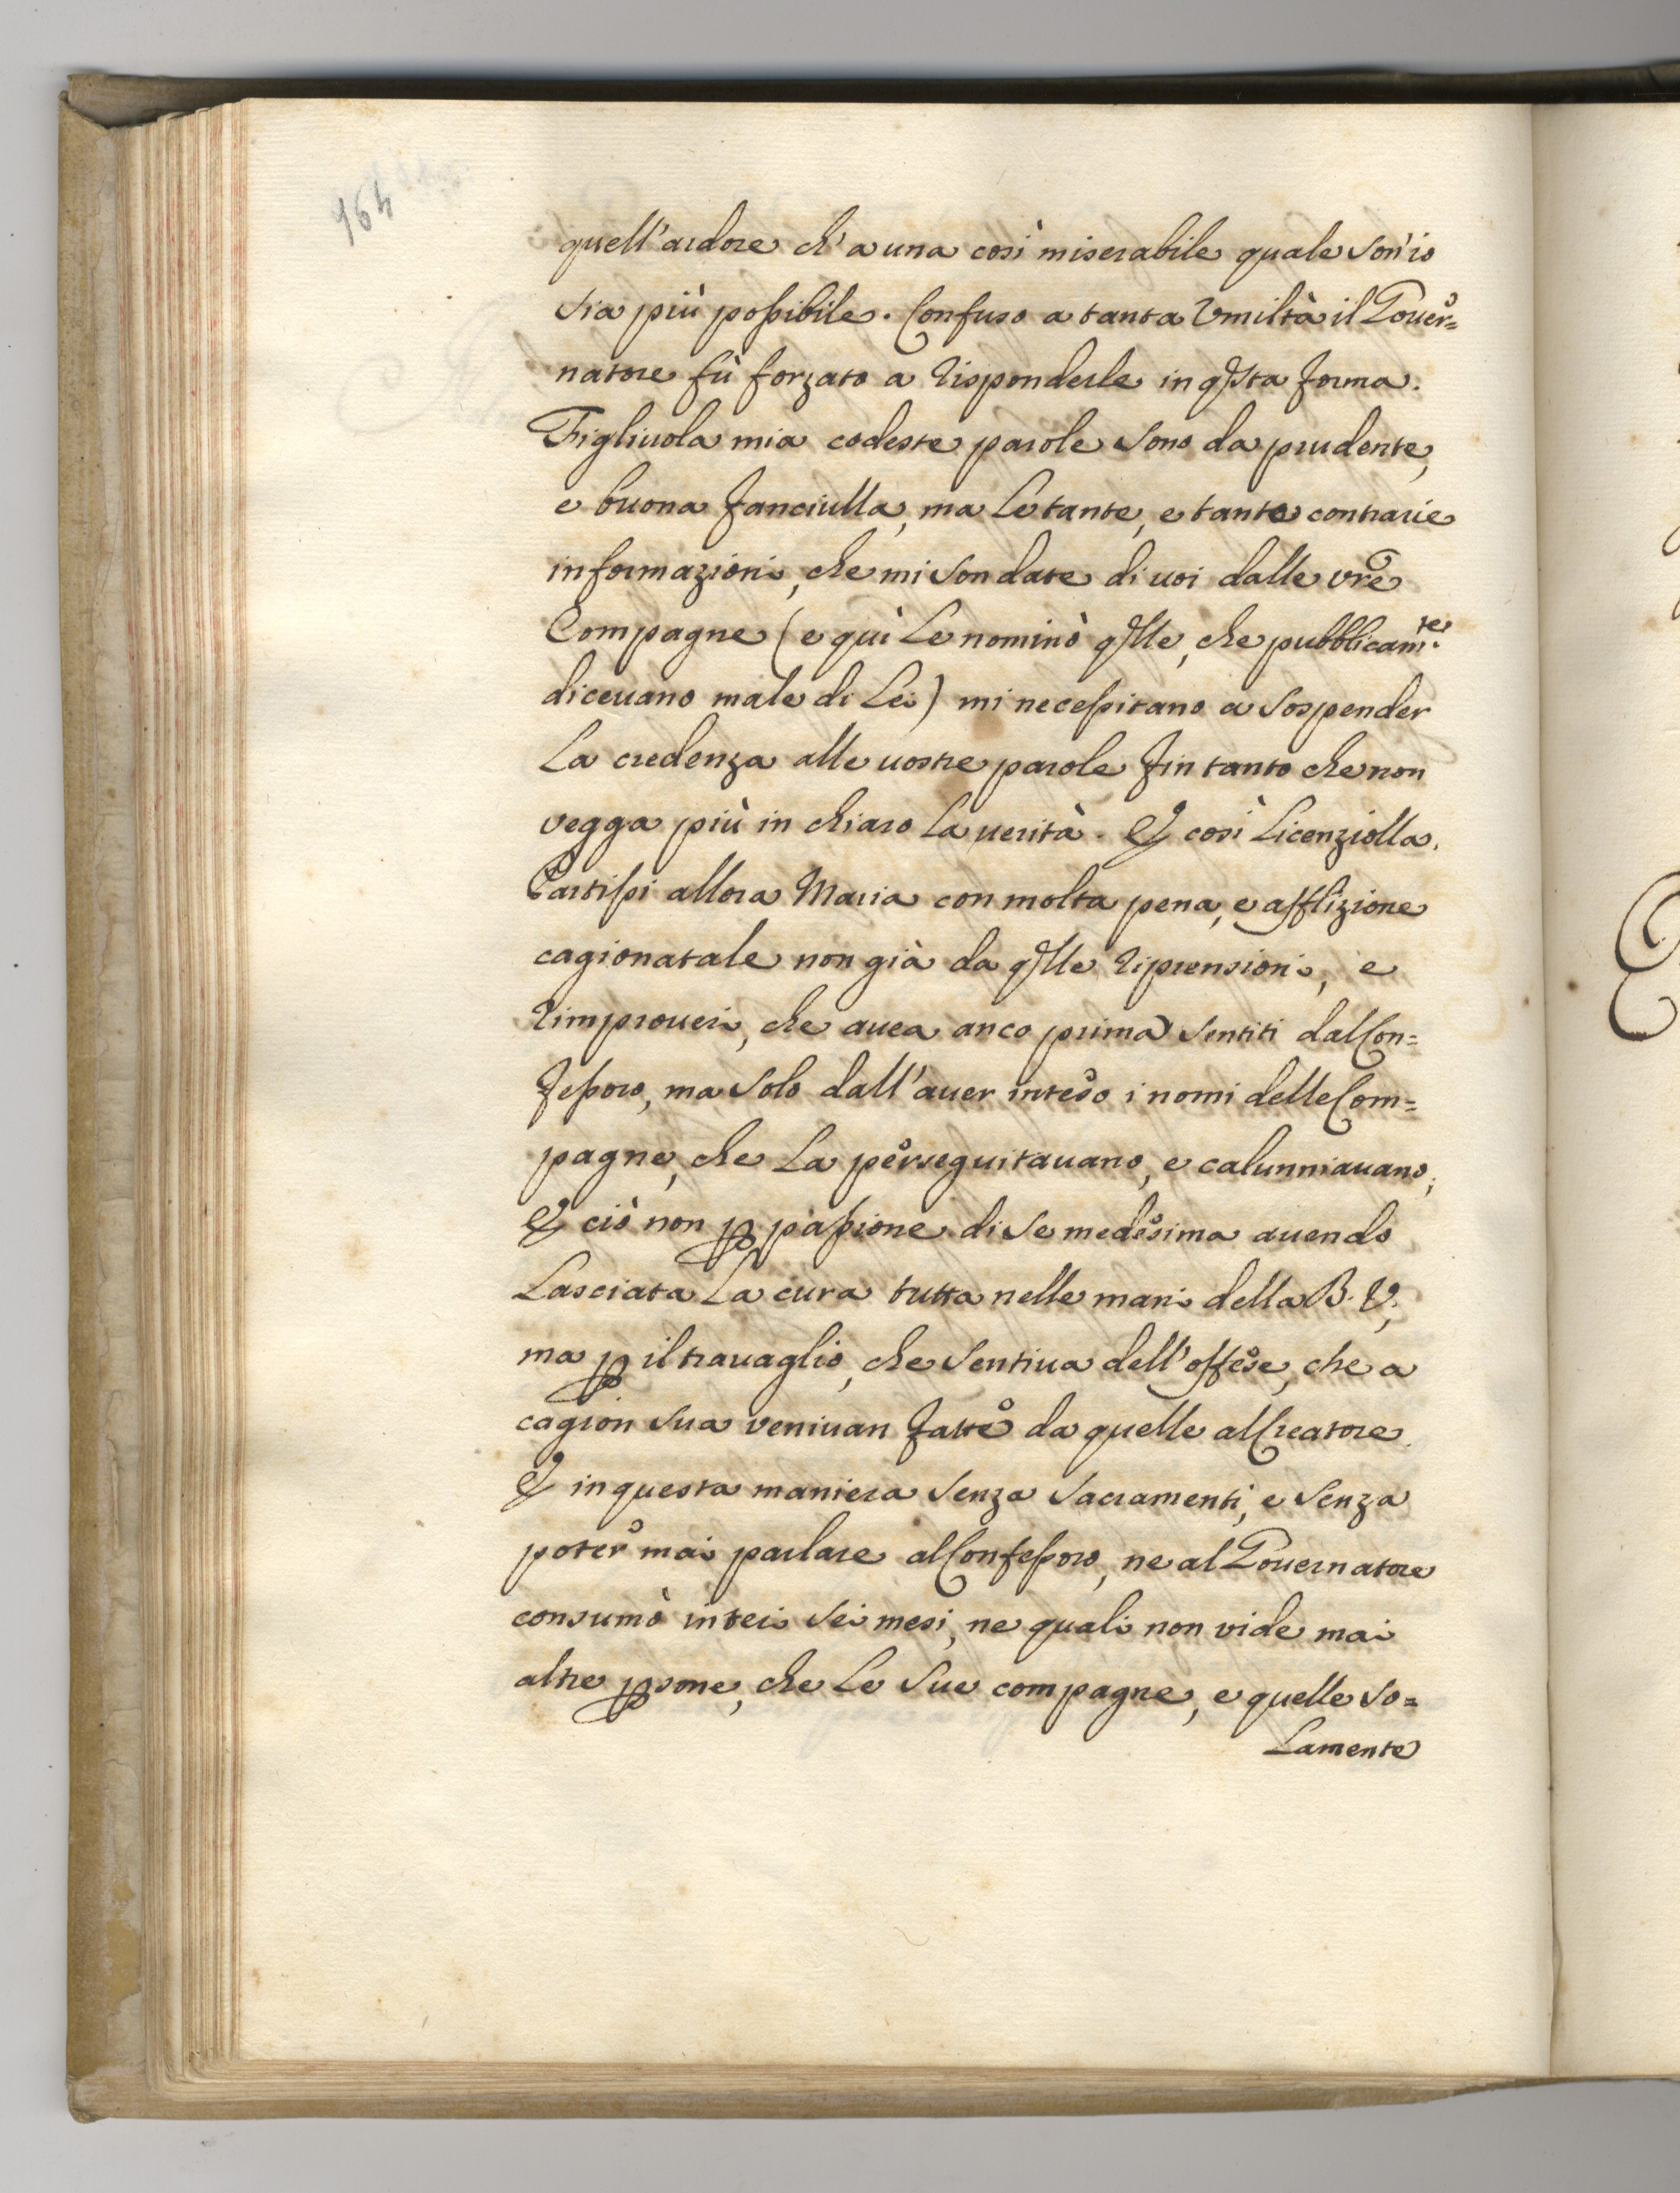 964
quell'ardore ch'a una così miserabile quale son'io
sia più possibile. Confuso a tanta Umiltà il Gover=
natore fù forzato a risponderle in qsta forma.
Figliuola mia codeste parole sono da prudente,
e buona fanciulla, ma le tante, e tante contrarie
informazioni, che mi son date di uoi dalle vre
Compagne (e quì le nominò qlle, che pubblicamte.
diceuano male di Lei) mi necessitano a sospender
la credenza alle uostre parole fin tanto che non
vegga più in chiaro la uerità. E così licenziolla.
Partissi allora Maria con molta pena, e afflizione
cagionatale non già da qlle riprensioni, e
rimproueri, che auea anco prima sentiti dal Con=
fessoro, ma solo dall'auer inteso i nomi delle Com=
pagne, che la perseguitauano, e calunniauano;
E ciò non p passione di se medesima auendo
lasciata la cura tutta nelle mani della B. V.;
ma p il trauaglio, che sentiua dell'offese, che a
cagion sua veniuan fatte da quelle al Creatore.
E in questa maniera senza sacramenti, e senza
poter mai parlare al Confessoro, ne al Gouernatore
consumò interi sei mesi, ne quali non vide mai
altre psone, che le sue compagne, e quelle so=
lamente